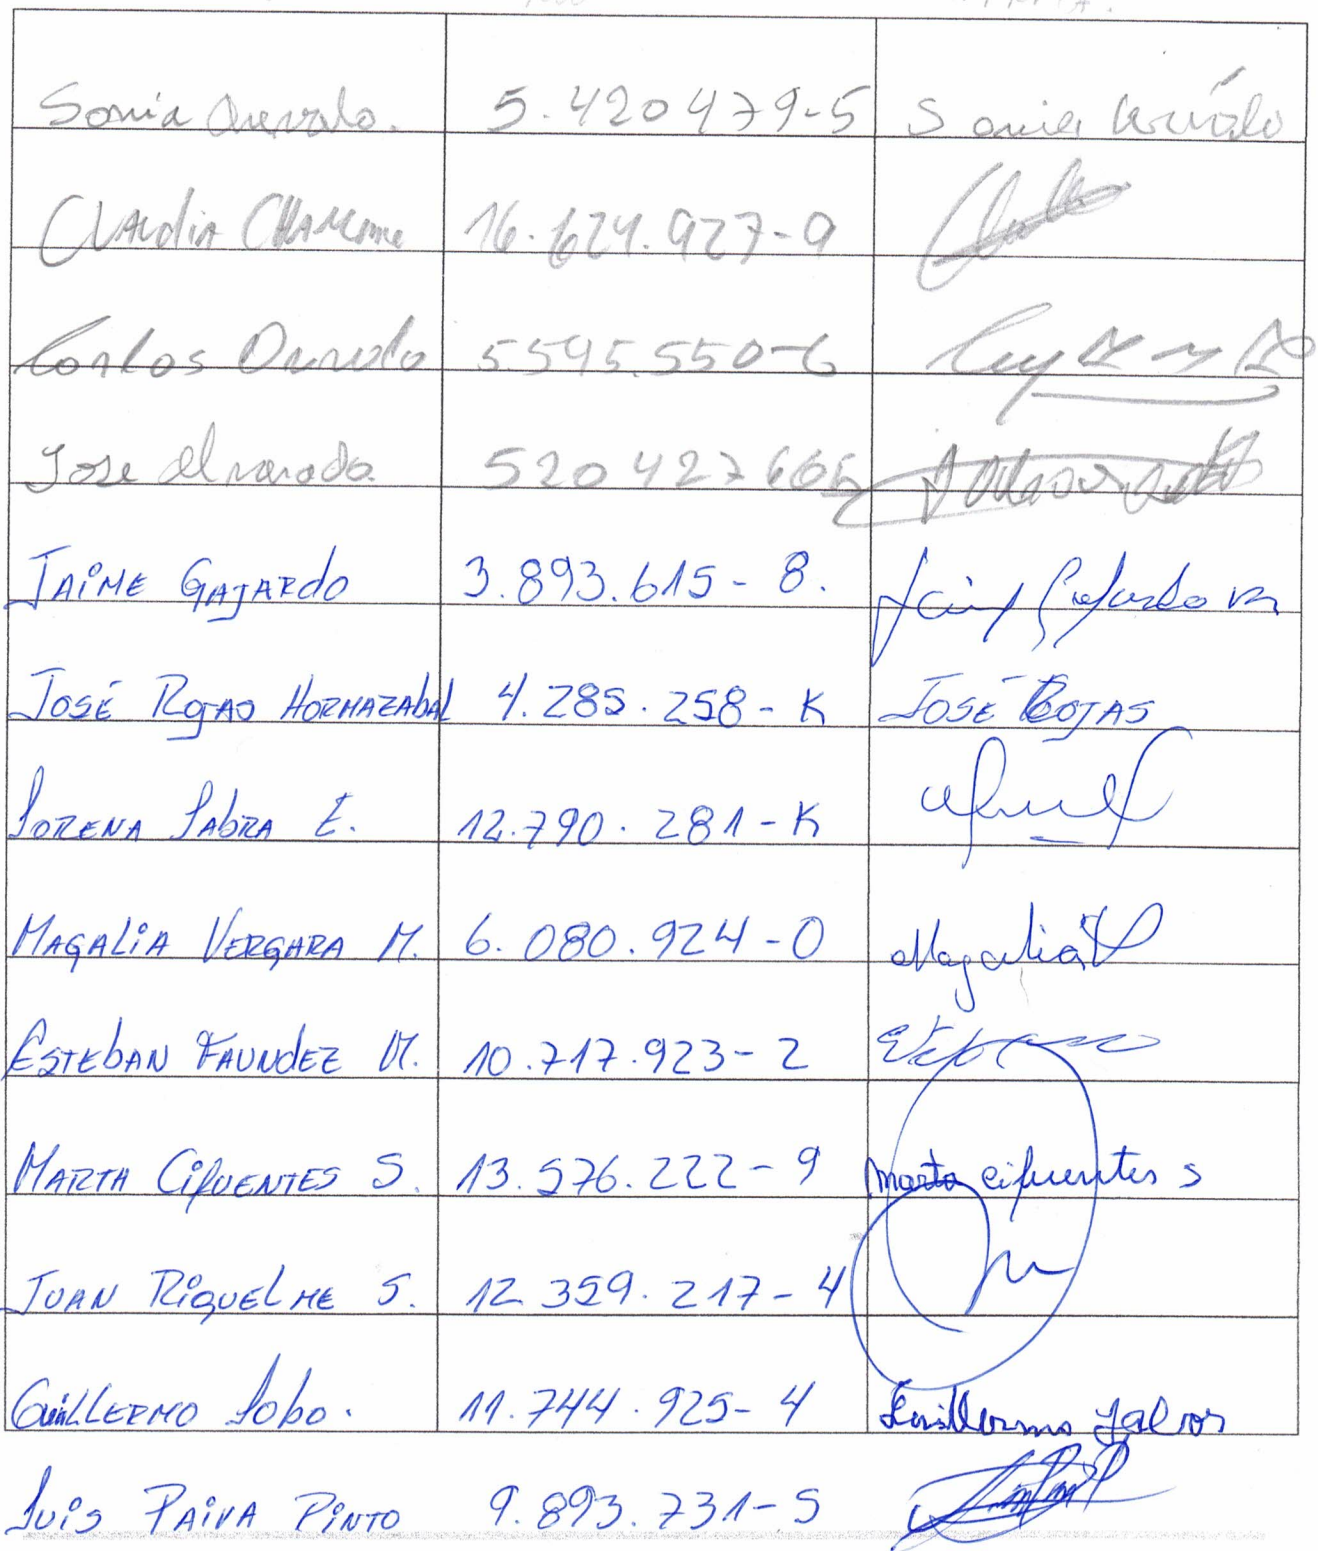 Sonia Arevalo. 5.420479-5 Sonia Arévalo
Claudia 16.624.927-9
Carlos 5.545.550-6
Jose Alvarado 520427665
JAIME GAJARDO 3.893.615-8. Jaime Gajardo
JOSÉ ROJAS HORMAZABAL 4.285.258-K JOSÉ ROJAS
LORENA LABRA E. 12.790.281-K
MAGALIA VERGARA M. 6.080.924-0 Magalia V
ESTEBAN FAUNDEZ M. 10.717.923-2
MARTA CIFUENTES S. 13.576.222-9 Marta cifuentes s
JUAN RIQUELME S. 12.359.217-4
GUILLERMO LOBO. 11.744.925-4 Guillermo
LUIS PAIVA PINTO 9.893.731-5